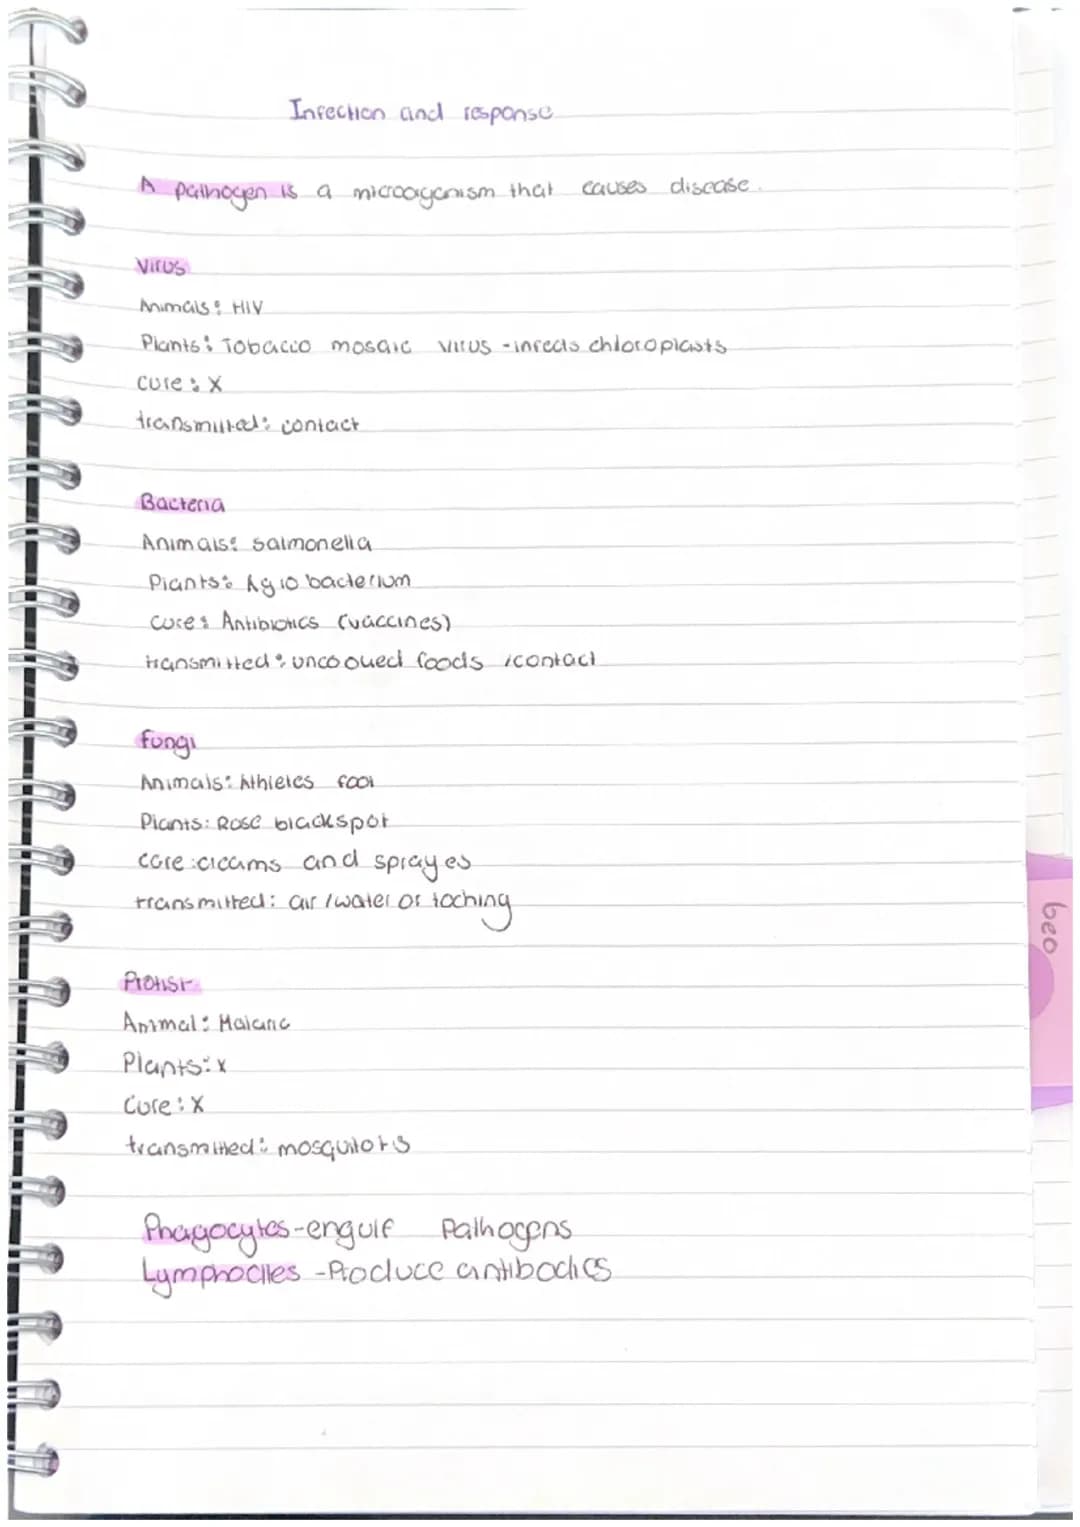 Infection and response
A pathogen is a microorganism that causes disease.
Virus
Animals: HIV
Plants: Tobacco mosaic virus - infects chloroplasts
Cure: X
transmitted: contact
Bacteria
Animals: salmonella
Plants: Agrobacterium
Cure: Antibiotics (vaccines)
transmitted: uncooked foods / contact
Fungi
Animals: Athletes foot
Plants: Rose blackspot
Cure: creams and sprayes
transmitted: air / water or toching
Protist
Animal: Malaria
Plants: x
Cure: X
transmitted:
Phagocytes - engulf Pathogens
Lymphocites - Produce antibodies
Geo